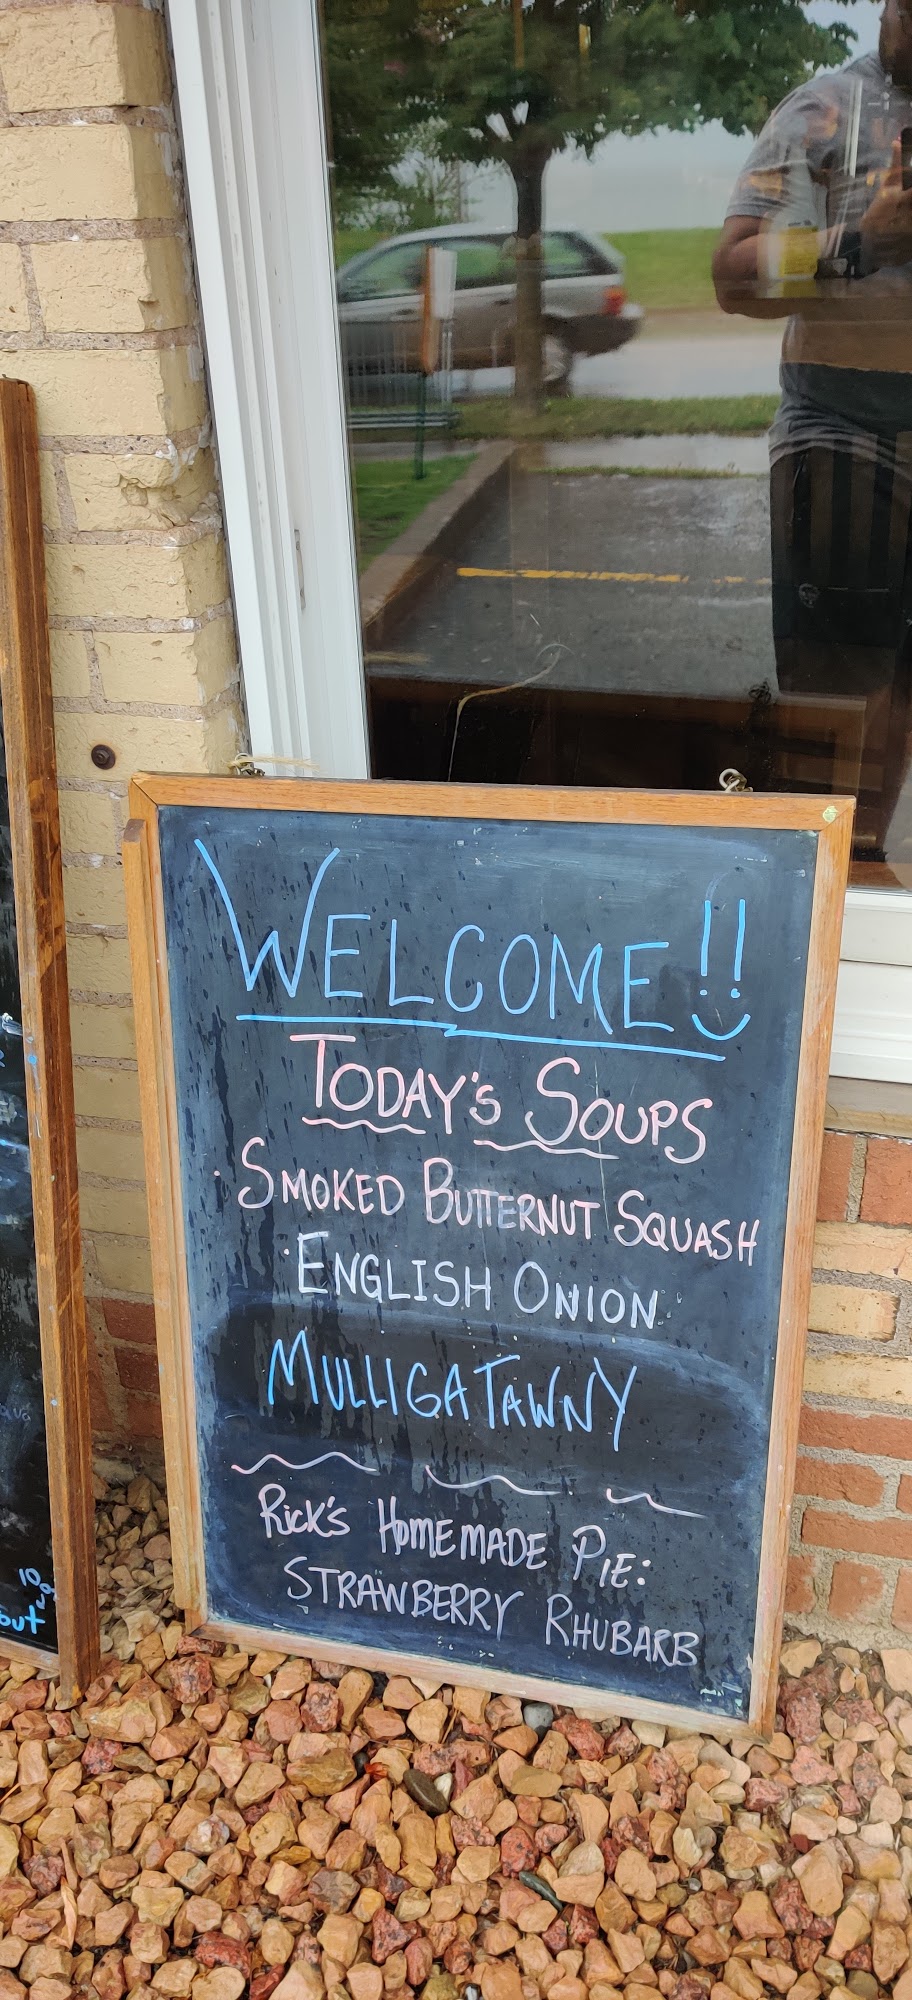 WELCOME!!
TODAY'S SOUPS
· SMOKED BUTTERNUT SQUASH
· ENGLISH ONION
MULLIGATAWNY
RICK'S HOMEMADE PIE:
STRAWBERRY RHUBARB
out